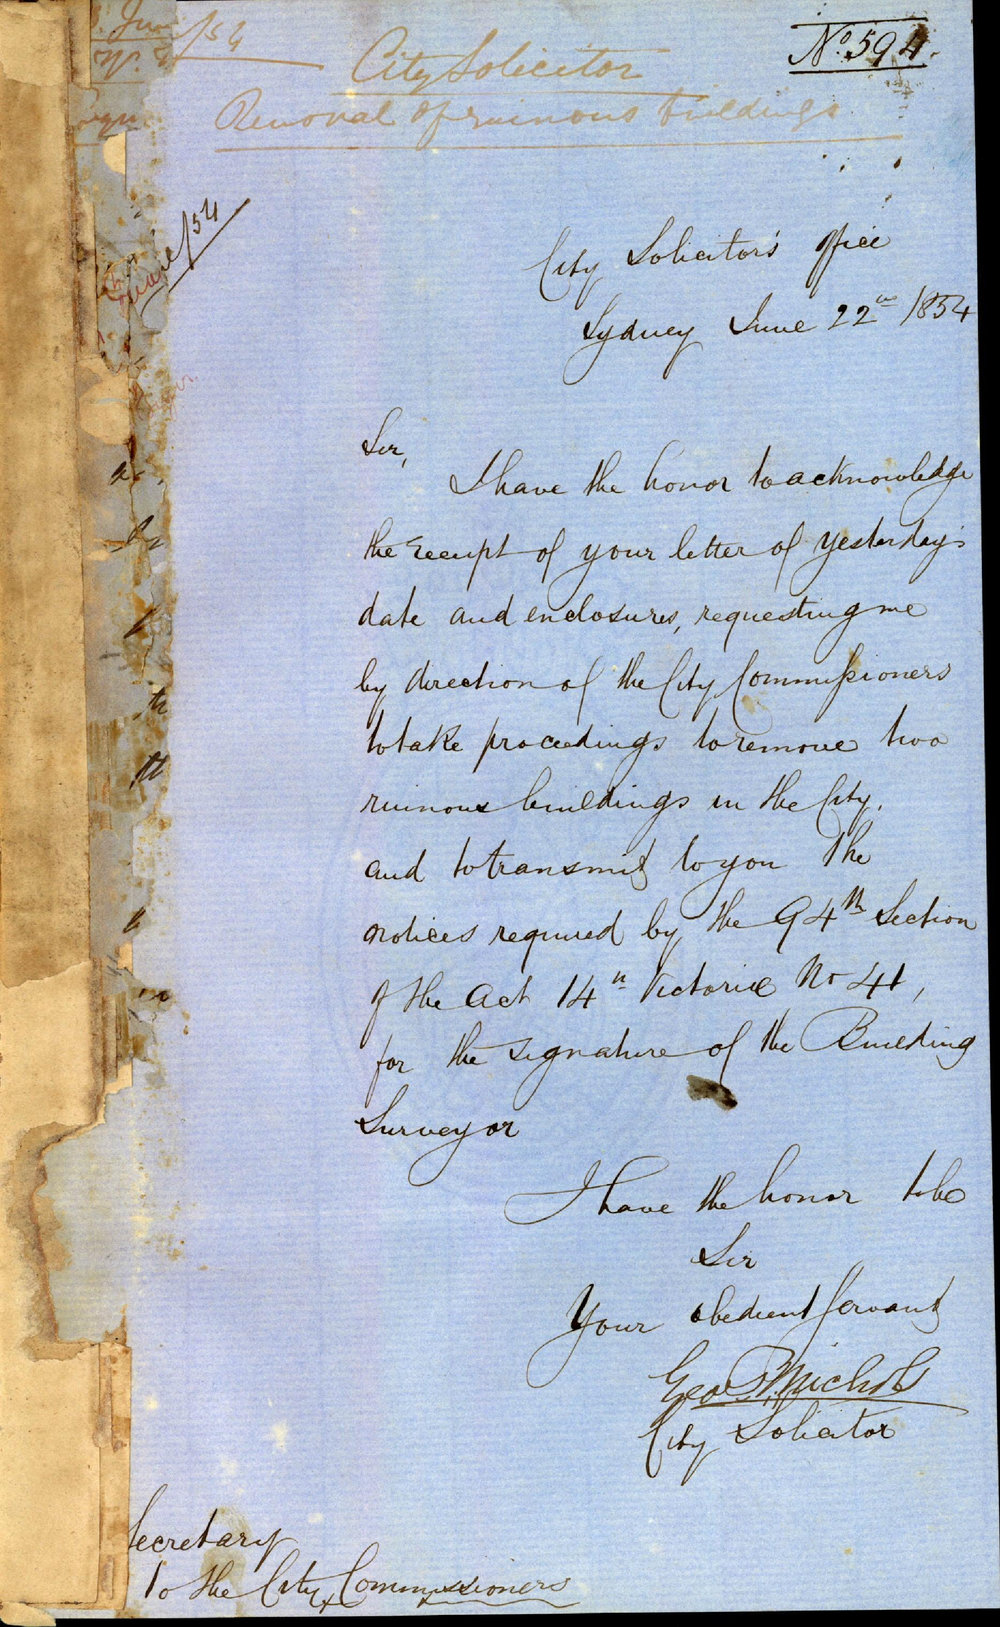 No. 594.
City Solicitor
Removal of ruinous buildings
City Solicitor's Office
Sydney June 22nd 1854
Sir,
I have the honor to acknowledge
the receipt of your letter of yesterday's
date and enclosures, requesting me
by direction of the City Commissioners
to take proceedings to remove two
ruinous buildings in the City.
and to transmit to you the
notices required by the 94th Section
of the Act 14th Victoriæ No 41,
for the signature of the Building
Surveyor
I have the honor to be
Sir
Your obedient Servant
Geo R Nichols
City Solicitor
Secretary
to the City Commissioners